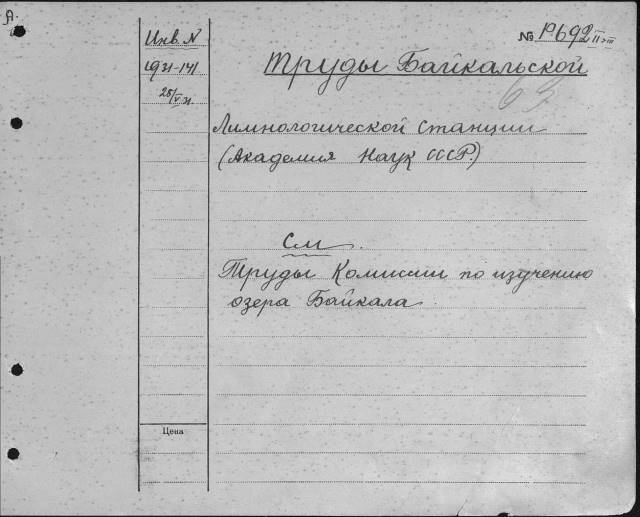 А.
Инв. N
1931-141
25/V 31.
№ 19692 II-III
Труды Байкальской
Лимнологической станции
(Академия Наук СССР.)
См.
Труды Комиссии по изучению
озера Байкала
Цена